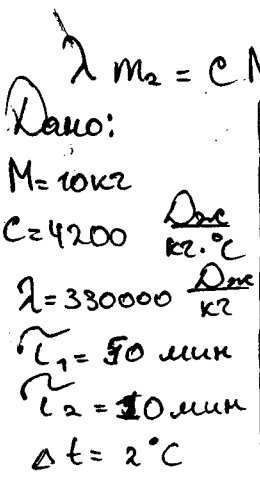 λ m₂ = c M
Дано:
M = 10 кг
C = 4200 Дж/кг·°C
λ = 330000 Дж/кг
τ₁ = 50 мин
τ₂ = 10 мин
Δt = 2 °C